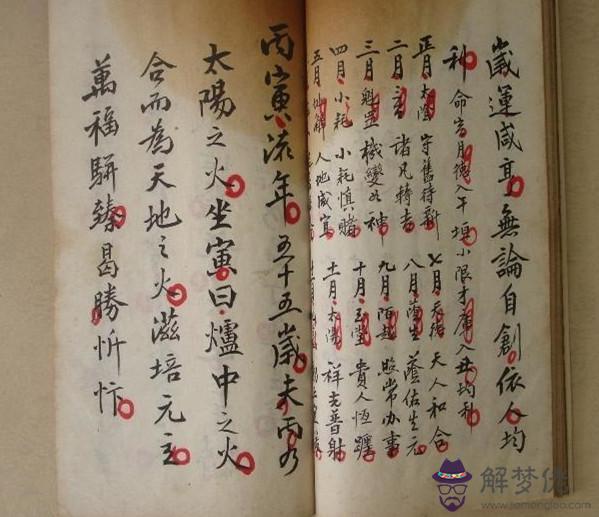 歲運咸亨無論自創依人均
利 命宮月德入午垣小限才庫入丑均利
正月太陰 守舊待新 七月天德 天人和合
二月 諸凡轉吉 八月蔭生 蔭佑生元
三月魁罡 機變如神 九月陌越 照常办事
四月小耗 小耗慎賭 十月玉堂 貴人恆躔
五月 解 人地咸宜 十一月太陽 祥光普射
丙寅流年 五十五歲未雨
太陽之火坐寅曰爐中之火
合而為天地之火滋培元主
萬福駢臻曷勝忻忭
解梦佬
www.jiemenglao.com